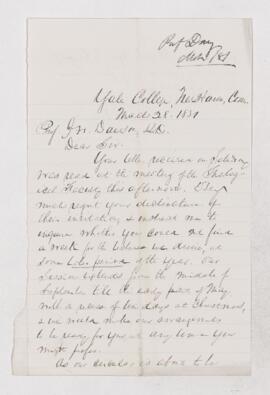 Prof Day
Yale College, New Haven, Conn.
March 28. 1881
Prof J. W. Dawson, LL.D.
Dear Sir.
Your letter received on Saturday
was read at the meeting of the Theolog-
ical Faculty this afternoon. They
much regret your declination of
their invitation, & instruct me to
inquire whether you could not find
a week for the lectures we desire, at
some later period of the year. Our
session extends from the middle of
September till the early part of May,
with a recess of ten days at Christmas,
& we would make our arrangements
to be ready for you at any time you
might prefer.
As our circular is about to be